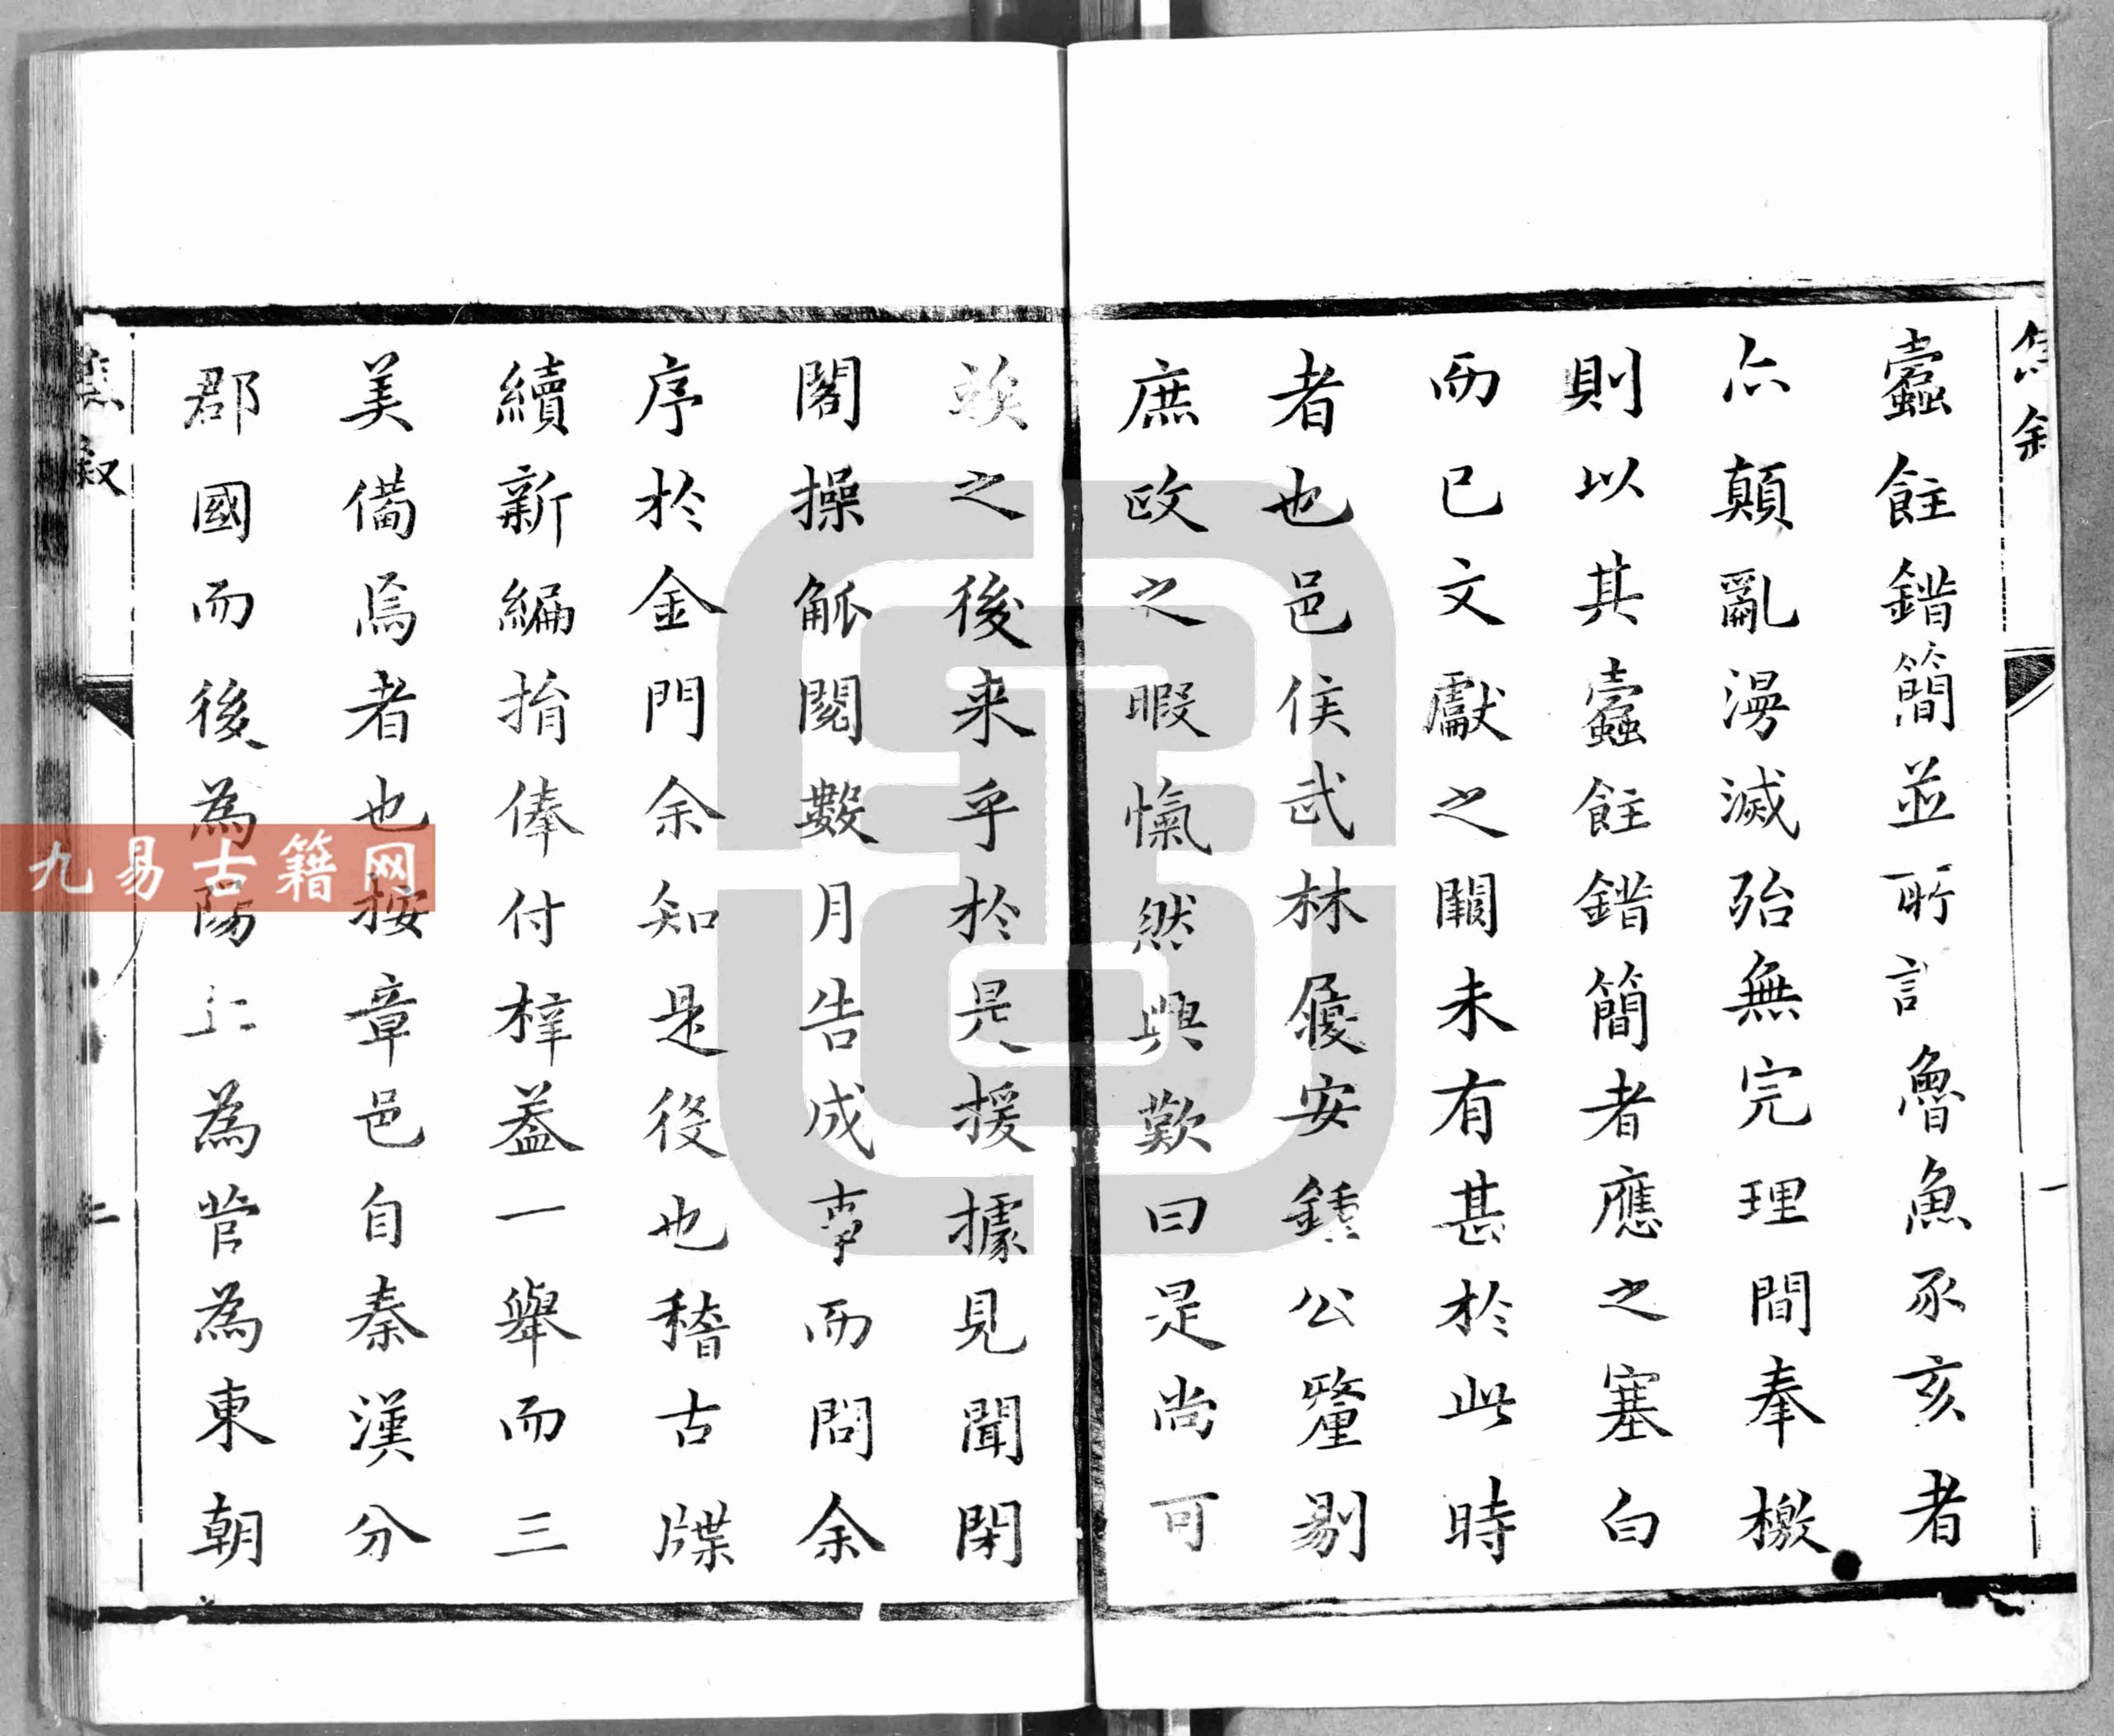 蠹飳錯簡並所訁魯魚豕亥者
亦顛亂漫滅殆無完理間奉檄
則以其蠹飳錯簡者應之塞白
而已文獻之闕未有甚於此時
者也邑侯武林履安鍾公釐剔
庶政之暇愾然興歎曰是尚可
竢之後来乎於是援據見聞閉
閣操觚閱數月告成事而問余
序於金門余知是役也稽古牒
續新編捐俸付梓葢一舉而三
美備焉者也按章邑自秦漢分
郡國而後為陽丘為菅為東朝
焦叙
一
焦叙
二
九易古籍网